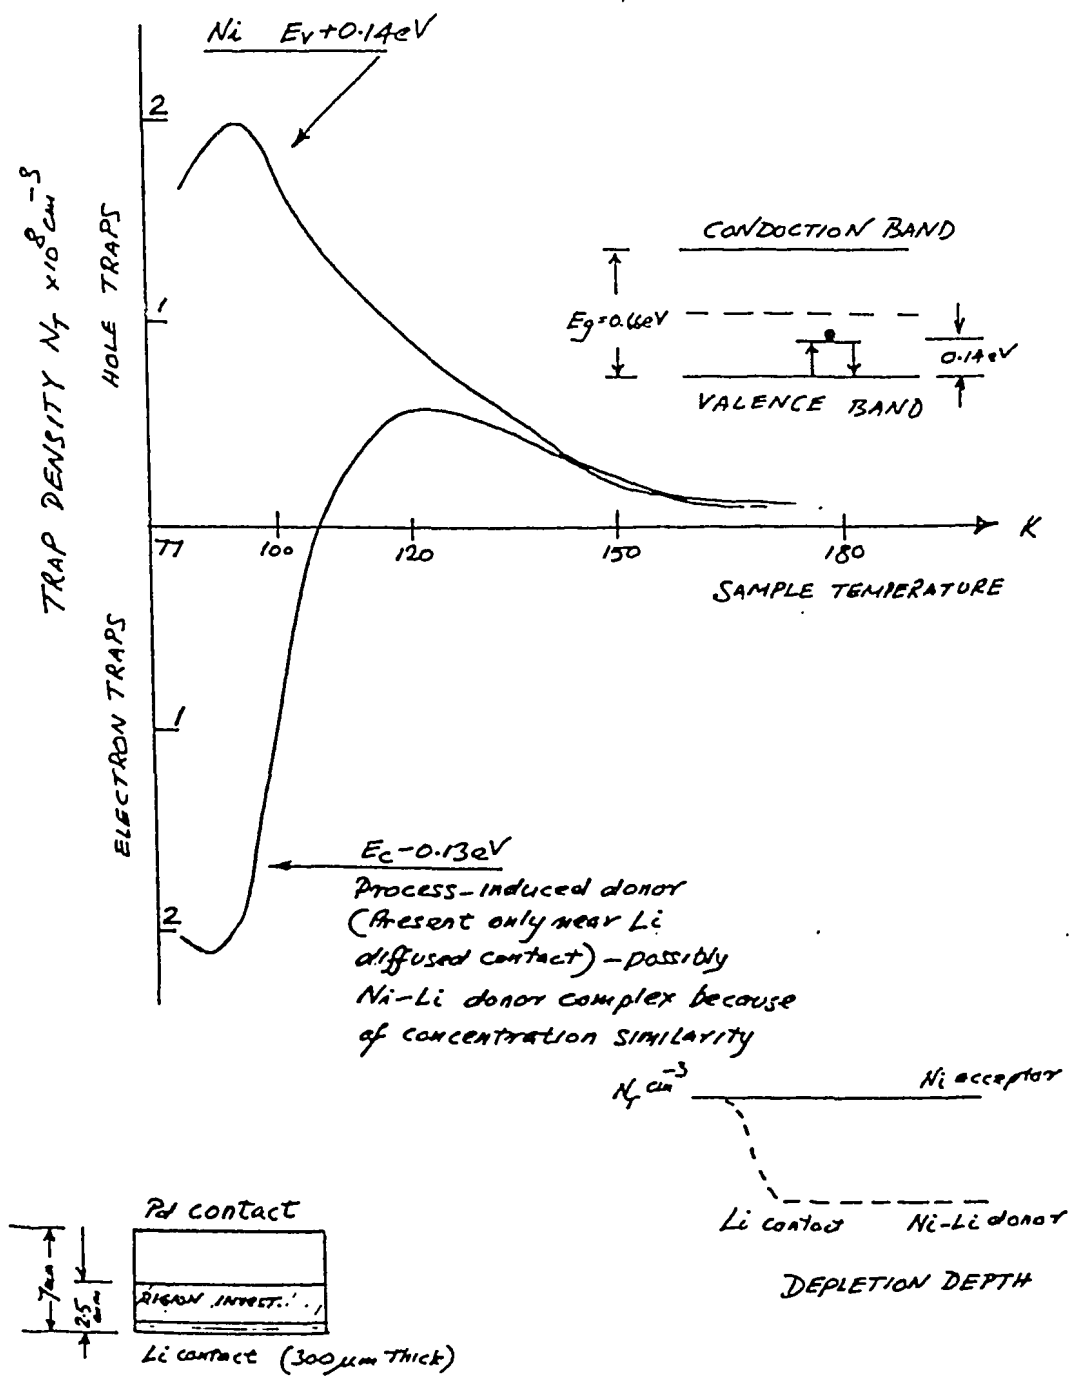 Ni Ev+0.14eV
2
1
TRAP DENSITY NT ×10⁸ cm⁻³
HOLE TRAPS
CONDUCTION BAND
Eg=0.6eV
0.14eV
VALENCE BAND
77
100
120
150
180
K
SAMPLE TEMPERATURE
ELECTRON TRAPS
1
2
Ec-0.13eV
Process-induced donor
(Present only near Li
diffused contact) - possibly
Ni-Li donor complex because
of concentration similarity
NT cm⁻³
Ni acceptor
Li contact
Ni-Li donor
DEPLETION DEPTH
Pd contact
7mm
2.5 mm
REGION INVEST.
Li contact (300µm Thick)